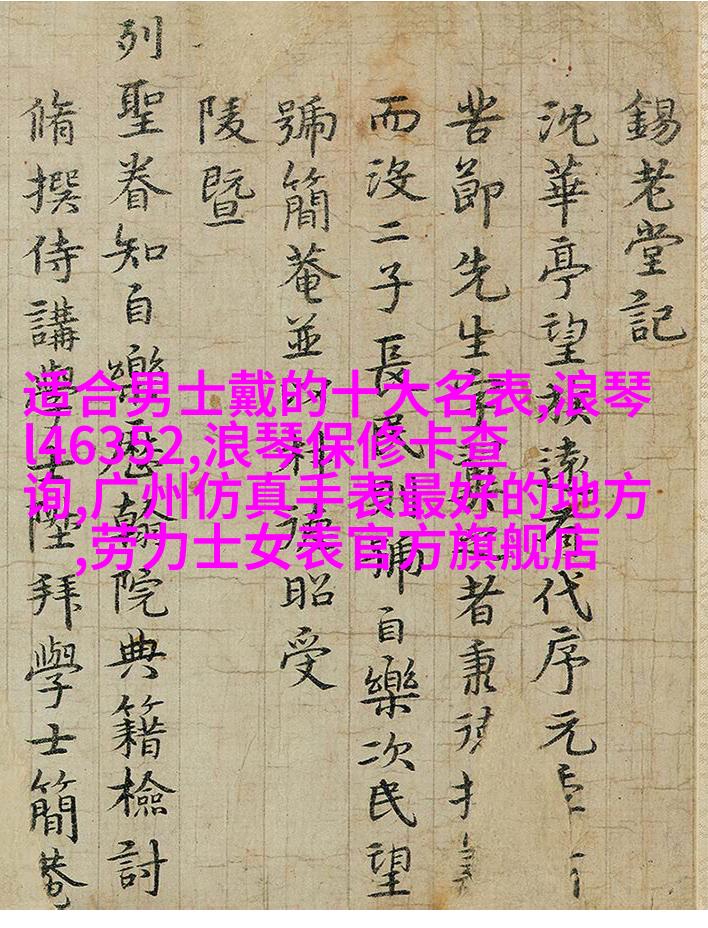 錫老堂記
沈華亭望族遠有代序元
苦節先生者秉
而沒二子長民則號自樂次民望
號簡菴並以昭受
陵暨
列聖眷知自樂歷翰院典籍檢討
脩撰侍講學士陞拜學士簡菴
适合男士戴的十大名表,浪琴
l46352,浪琴保修卡查
询,广州仿真手表最好的地方
,劳力士女表官方旗舰店